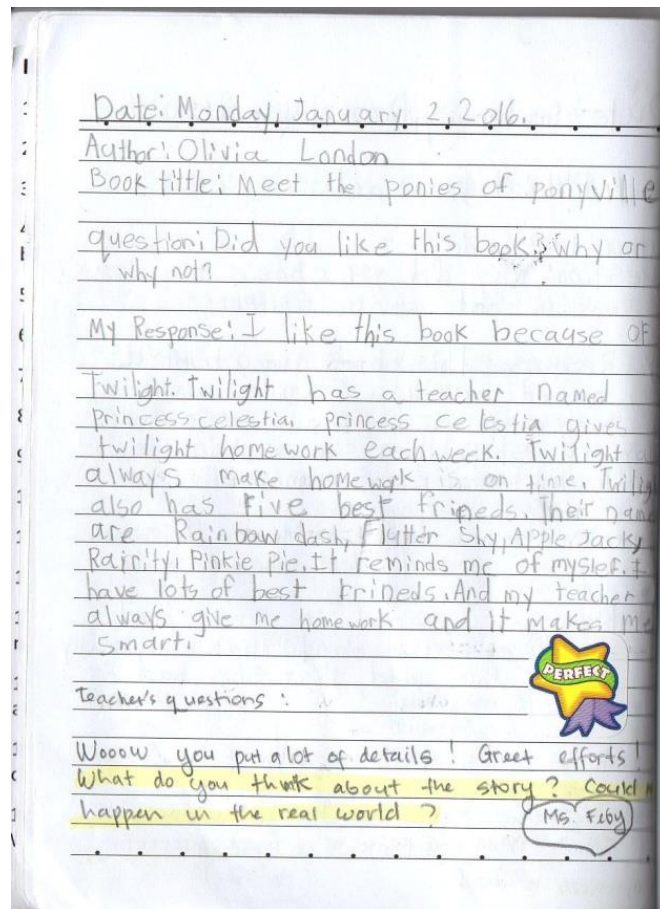 Date: Monday, January 2, 2016.
Author: Olivia London
Book tittle: Meet the ponies of ponyville
question: Did you like this book? why or
why not?
My Response: I like this book because of
Twilight. Twilight has a teacher named
Princess celestia. princess celestia gives
twilight homework each week. Twilight
always make homework is on time. Twilig
also has Five best frineds. Their name
are Rainbaw dash, Flutter Shy, Apple Jack,
Rairity, Pinkie Pie. It reminds me of myslef. I
have lots of best Frineds. And my teacher
always give me homework and it makes me
smart.
PERFECT
Teacher's questions :
Wooow you put a lot of details ! Greet efforts !
What do you think about the story ? Could
happen in the real world ?
Ms. Feby